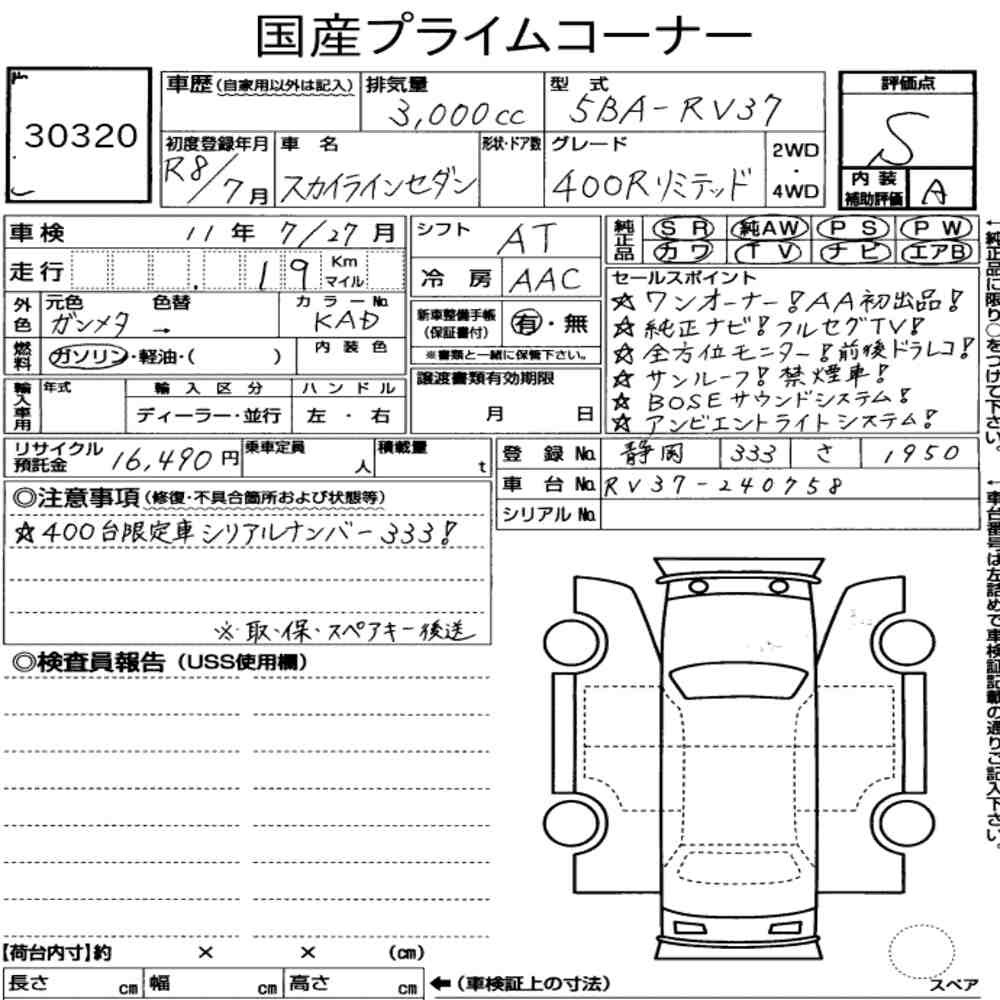 国産プライムコーナー
30320
車歴(自家用以外は記入)
排気量 3,000cc
型式 5BA-RV37
評価点 S
内装補助評価 A
初度登録年月 R8/7月
車名 スカイラインセダン
形状・ドア数
グレード 400Rリミテッド
2WD・4WD
車検 11年 7/27月
シフト AT
純正品 SR 純AW PS PW
カワ TV ナビ エアB
走行 19 Km マイル
冷房 AAC
セールスポイント
☆ワンオーナー!AA初出品!
☆純正ナビ!フルセグTV!
☆全方位モニター!前後ドラレコ!
☆サンルーフ!禁煙車!
☆BOSEサウンドシステム!
☆アンビエントライトシステム!
外色 元色 ガンメタ → 色替
カラーNo. KAD
新車整備手帳(保証書付) 有・無
※書類と一緒に保管下さい。
燃料 ガソリン・軽油・( )
内装色
輸入車用 年式
輸入区分 ディーラー・並行
ハンドル 左・右
譲渡書類有効期限
月 日
リサイクル預託金 16,490円
乗車定員 人
積載量 t
登録No. 静岡 333 さ 1950
車台No. RV37-240758
シリアルNo.
◎注意事項(修復・不具合箇所および状態等)
☆400台限定車シリアルナンバー333!
※取・保・スペアキー後送
◎検査員報告(USS使用欄)
←純正品に限り○をつけて下さい。
←車台番号は左詰めで車検証記載の通りご記入下さい。
【荷台内寸】約 × × (cm)
長さ cm 幅 cm 高さ cm
←(車検証上の寸法)
スペア